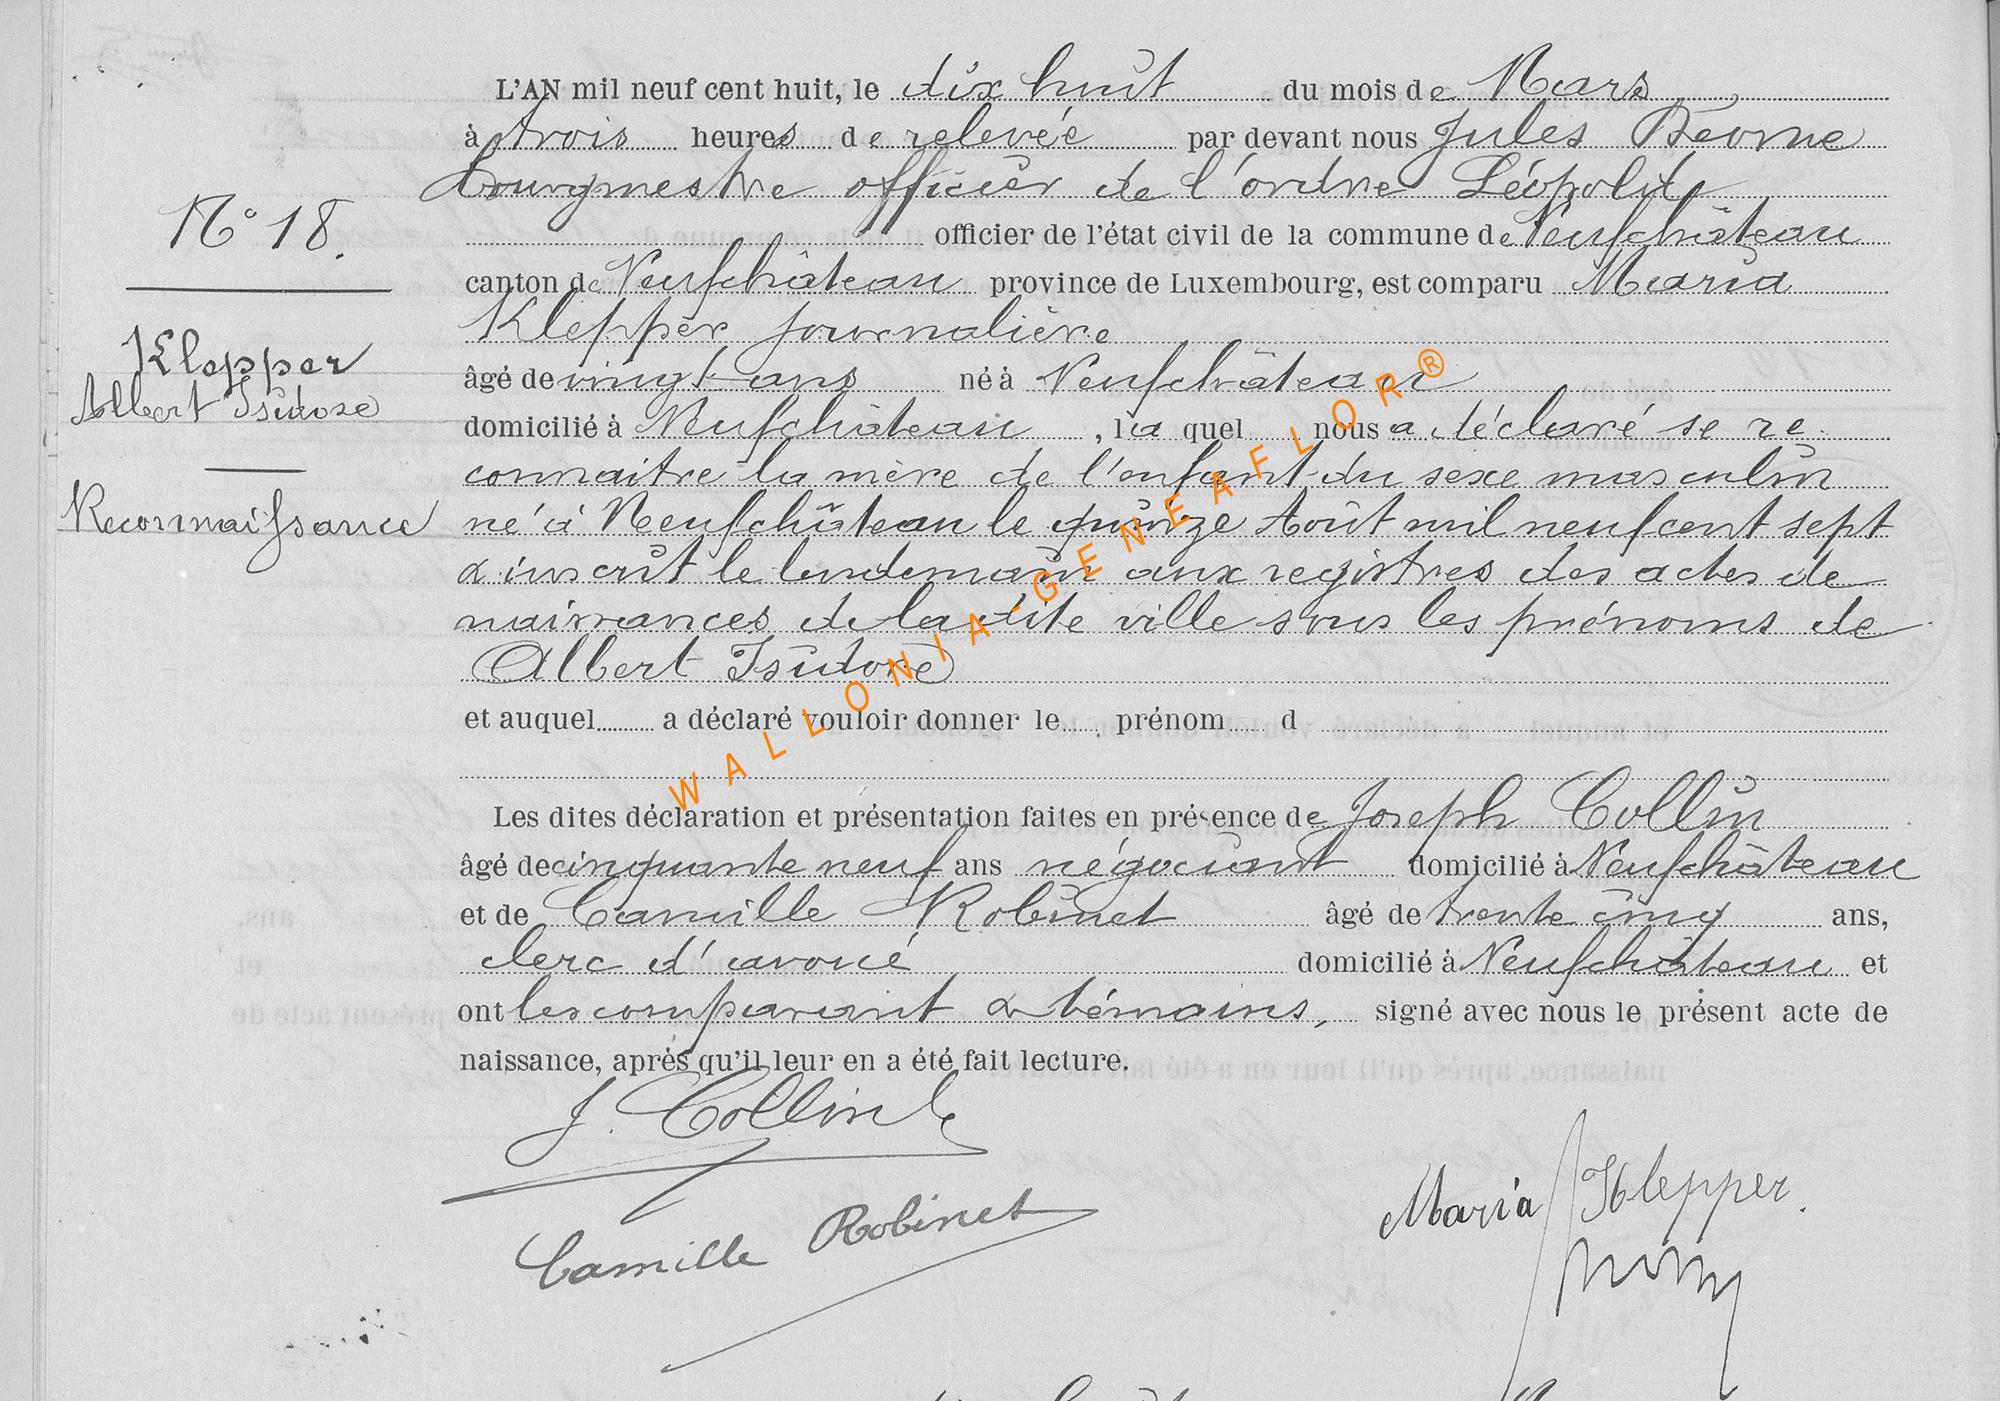 L'AN mil neuf cent huit, le dix huit du mois de Mars
à trois heures de relevée par devant nous Jules
bourgmestre officier de l'ordre Léopold
N° 18.
officier de l'état civil de la commune de Neufchâteau
canton de Neufchâteau province de Luxembourg, est comparu Maria
Klepper journalière
Klepper
Albert Isidore
âgé de vingt ans né à Neufchâteau
domicilié à Neufchâteau, la quel nous a déclaré se re
connaitre la mère de l'enfant du sexe masculin
Reconnaissance
né à Neufchâteau le quinze Août mil neuf cent sept
& inscrit le lendemain aux registres des actes de
naissances de la dite ville sous les prénoms de
Albert Isidore
et auquel a déclaré vouloir donner le prénom d
WALLONIA-GENEAFLOR®
Les dites déclaration et présentation faites en présence de Joseph Collin
âgé de cinquante neuf ans négociant domicilié à Neufchâteau
et de Camille Robinet âgé de trente cinq ans,
clerc d'avoué domicilié à Neufchâteau et
ont les comparant & témoins, signé avec nous le présent acte de
naissance, après qu'il leur en a été fait lecture.
J. Collin
Maria Klepper.
Camille Robinet